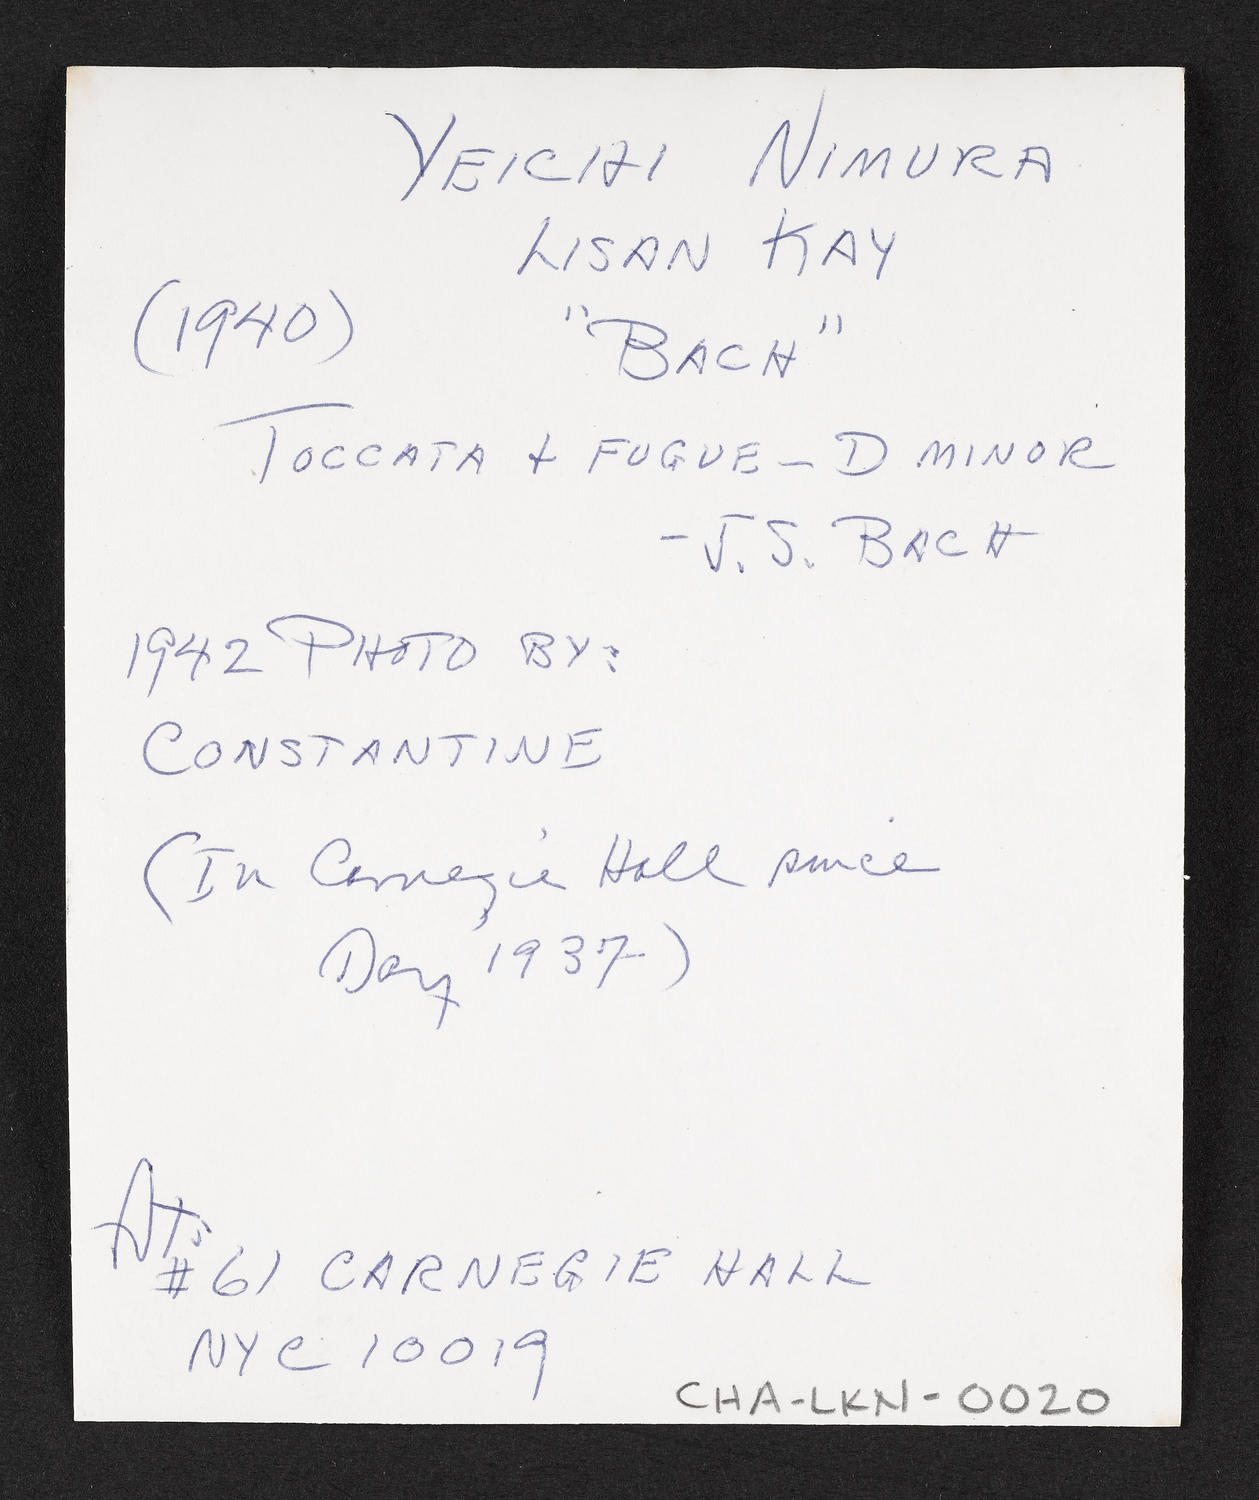 YEICHI NIMURA
LISAN KAY
(1940) "BACH"
TOCCATA + FUGUE - D MINOR
- J. S. BACH
1942 PHOTO BY:
CONSTANTINE
(In Carnegie Hall since
Day, 1937)
At:
#61 CARNEGIE HALL
NYC 10019
CHA-LKN-0020